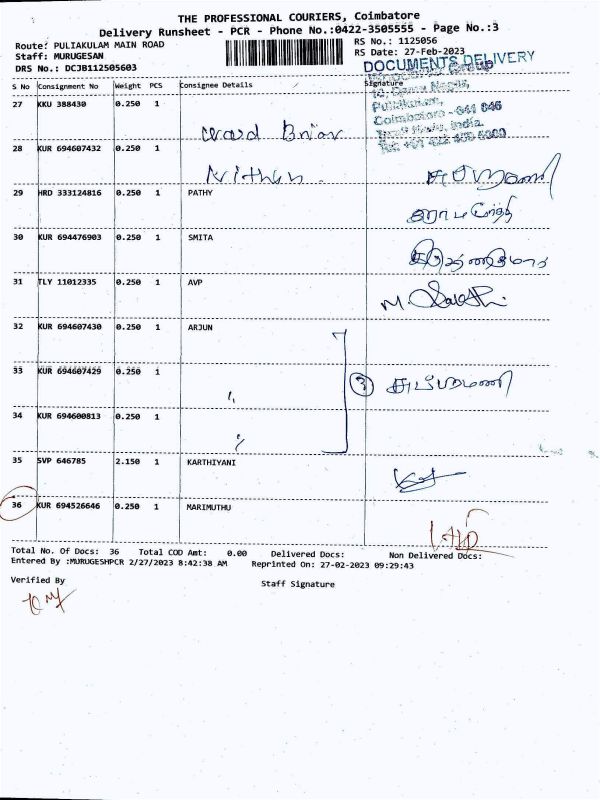 THE PROFESSIONAL COURIERS, Coimbatore
Delivery Runsheet - PCR - Phone No.:0422-3505555 - Page No.:3
Route: PULIAKULAM MAIN ROAD
RS No.: 1125056
Staff: MURUGESAN
RS Date: 27-Feb-2023
DRS No.: DCJB112505603
DOCUMENTS DELIVERY
S No Consignment No Weight PCS Consignee Details Signature
Puliakulam,
Coimbatore - 641 045
Tamil Nadu, India.
27 KKU 388430 0.250 1
28 KUR 694607432 0.250 1
Nithun.
29 HRD 333124816 0.250 1 PATHY
30 KUR 694476903 0.250 1 SMITA
31 TLY 11012335 0.250 1 AVP
32 KUR 694607430 0.250 1 ARJUN
33 KUR 694607429 0.250 1
3 சுப்ரமணி
34 KUR 694600813 0.250 1
35 SVP 646785 2.150 1 KARTHIYANI
36 KUR 694526646 0.250 1 MARIMUTHU
Total No. Of Docs: 36 Total COD Amt: 0.00 Delivered Docs: Non Delivered Docs:
Entered By :MURUGESHPCR 2/27/2023 8:42:38 AM Reprinted On: 27-02-2023 09:29:43
Verified By
Staff Signature